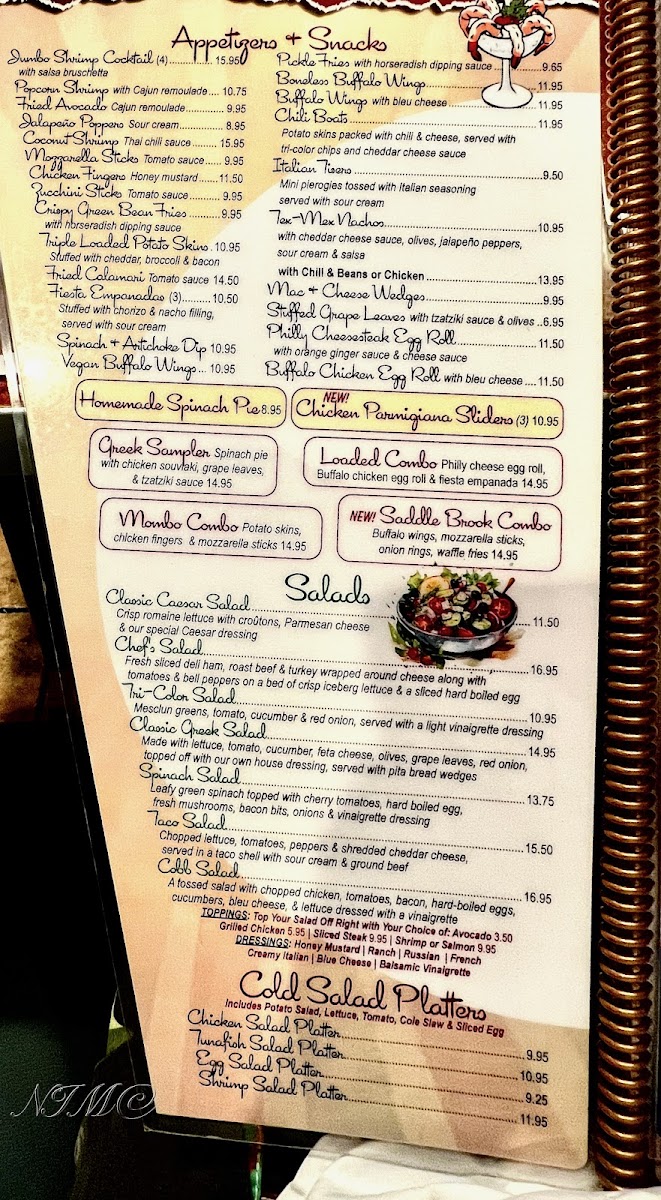 Appetizers + Snacks
Jumbo Shrimp Cocktail (4) 15.95
with salsa bruschetta
Popcorn Shrimp with Cajun remoulade 10.75
Fried Avocado Cajun remoulade 9.95
Jalapeño Poppers Sour cream 8.95
Coconut Shrimp Thai chili sauce 15.95
Mozzarella Sticks Tomato sauce 9.95
Chicken Fingers Honey mustard 11.50
Zucchini Sticks Tomato sauce 9.95
Crispy Green Bean Fries 9.95
with horseradish dipping sauce
Triple Loaded Potato Skins 10.95
Stuffed with cheddar, broccoli & bacon
Fried Calamari Tomato sauce 14.50
Fiesta Empanadas (3) 10.50
Stuffed with chorizo & nacho filling,
served with sour cream
Spinach + Artichoke Dip 10.95
Vegan Buffalo Wings 10.95
Pickle Fries with horseradish dipping sauce 9.65
Boneless Buffalo Wings 11.95
Buffalo Wings with bleu cheese 11.95
Chili Boats 11.95
Potato skins packed with chili & cheese, served with
tri-color chips and cheddar cheese sauce
Italian Tisers 9.50
Mini pierogies tossed with Italian seasoning
served with sour cream
Tex-Mex Nachos 10.95
with cheddar cheese sauce, olives, jalapeño peppers,
sour cream & salsa
with Chili & Beans or Chicken 13.95
Mac + Cheese Wedges 9.95
Stuffed Grape Leaves with tzatziki sauce & olives 6.95
Philly Cheesesteak Egg Roll 11.50
with orange ginger sauce & cheese sauce
Buffalo Chicken Egg Roll with bleu cheese 11.50
Homemade Spinach Pie 8.95
NEW!
Chicken Parmigiana Sliders (3) 10.95
Greek Sampler Spinach pie
with chicken souvlaki, grape leaves,
& tzatziki sauce 14.95
Loaded Combo Philly cheese egg roll,
Buffalo chicken egg roll & fiesta empanada 14.95
Mombo Combo Potato skins,
chicken fingers & mozzarella sticks 14.95
NEW! Saddle Brook Combo
Buffalo wings, mozzarella sticks,
onion rings, waffle fries 14.95
Salads
Classic Caesar Salad 11.50
Crisp romaine lettuce with croûtons, Parmesan cheese
& our special Caesar dressing
Chef's Salad 16.95
Fresh sliced deli ham, roast beef & turkey wrapped around cheese along with
tomatoes & bell peppers on a bed of crisp iceberg lettuce & a sliced hard boiled egg
Tri-Color Salad 10.95
Mesclun greens, tomato, cucumber & red onion, served with a light vinaigrette dressing
Classic Greek Salad 14.95
Made with lettuce, tomato, cucumber, feta cheese, olives, grape leaves, red onion,
topped off with our own house dressing, served with pita bread wedges
Spinach Salad 13.75
Leafy green spinach topped with cherry tomatoes, hard boiled egg,
fresh mushrooms, bacon bits, onions & vinaigrette dressing
Taco Salad 15.50
Chopped lettuce, tomatoes, peppers & shredded cheddar cheese,
served in a taco shell with sour cream & ground beef
Cobb Salad 16.95
A tossed salad with chopped chicken, tomatoes, bacon, hard-boiled eggs,
cucumbers, bleu cheese, & lettuce dressed with a vinaigrette
TOPPINGS: Top Your Salad Off Right with Your Choice of: Avocado 3.50
Grilled Chicken 5.95 | Sliced Steak 9.95 | Shrimp or Salmon 9.95
DRESSINGS: Honey Mustard | Ranch | Russian | French
Creamy Italian | Blue Cheese | Balsamic Vinaigrette
Cold Salad Platters
Includes Potato Salad, Lettuce, Tomato, Cole Slaw & Sliced Egg
Chicken Salad Platter 9.95
Tunafish Salad Platter 10.95
Egg Salad Platter 9.25
Shrimp Salad Platter 11.95